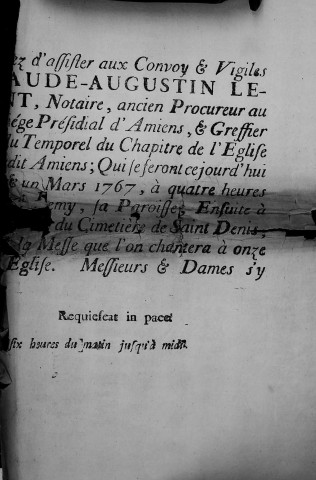 ez d'aſſiſter aux Convoy & Vigiles
AUDE-AUGUSTIN LE-
NT, Notaire, ancien Procureur au
ége Préſidial d'Amiens, & Greffier
du Temporel du Chapitre de l'Egliſe
dit Amiens; Qui ſe feront cejourd'hui
& un Mars 1767, à quatre heures
Remy, ſa Paroiſſe, Enſuite à
du Cimetiére de Saint Denis;
la Meſſe que l'on chantera à onze
Egliſe. Meſſieurs & Dames s'y
Requieſcat in pace.
ſix heures du matin juſqu'à midi.